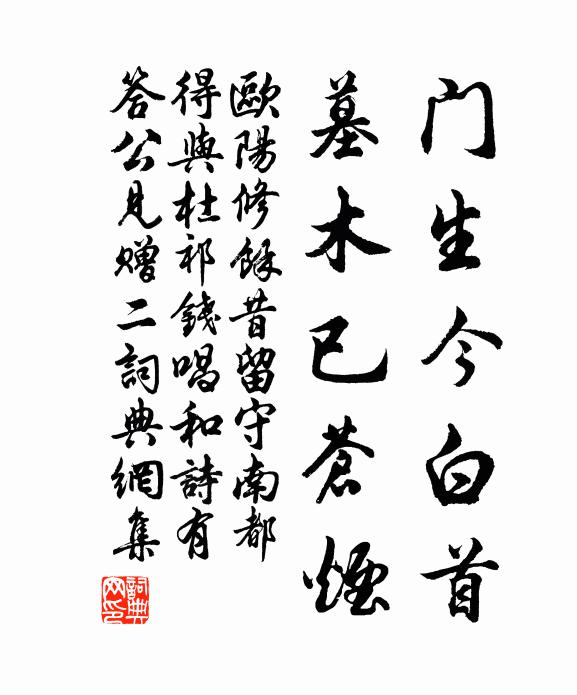 门生今白首
墓木已苍煙
歐陽修餘昔留守南都
得與杜祁錢唱和詩有
答公見贈二詞典網集
詞典网印